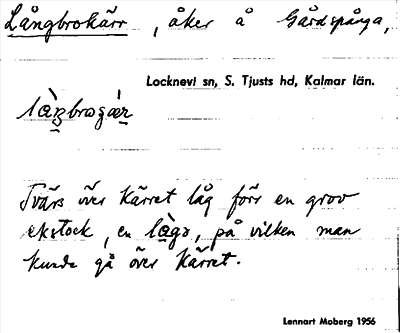 Långbrokärr, åker å Gårdspånga,
Locknevi sn, S. Tjusts hd, Kalmar län.
Tvärs över kärret låg förr en grov
ekstock, en lågə, på vilken man
kunde gå över kärret.
Lennart Moberg 1956